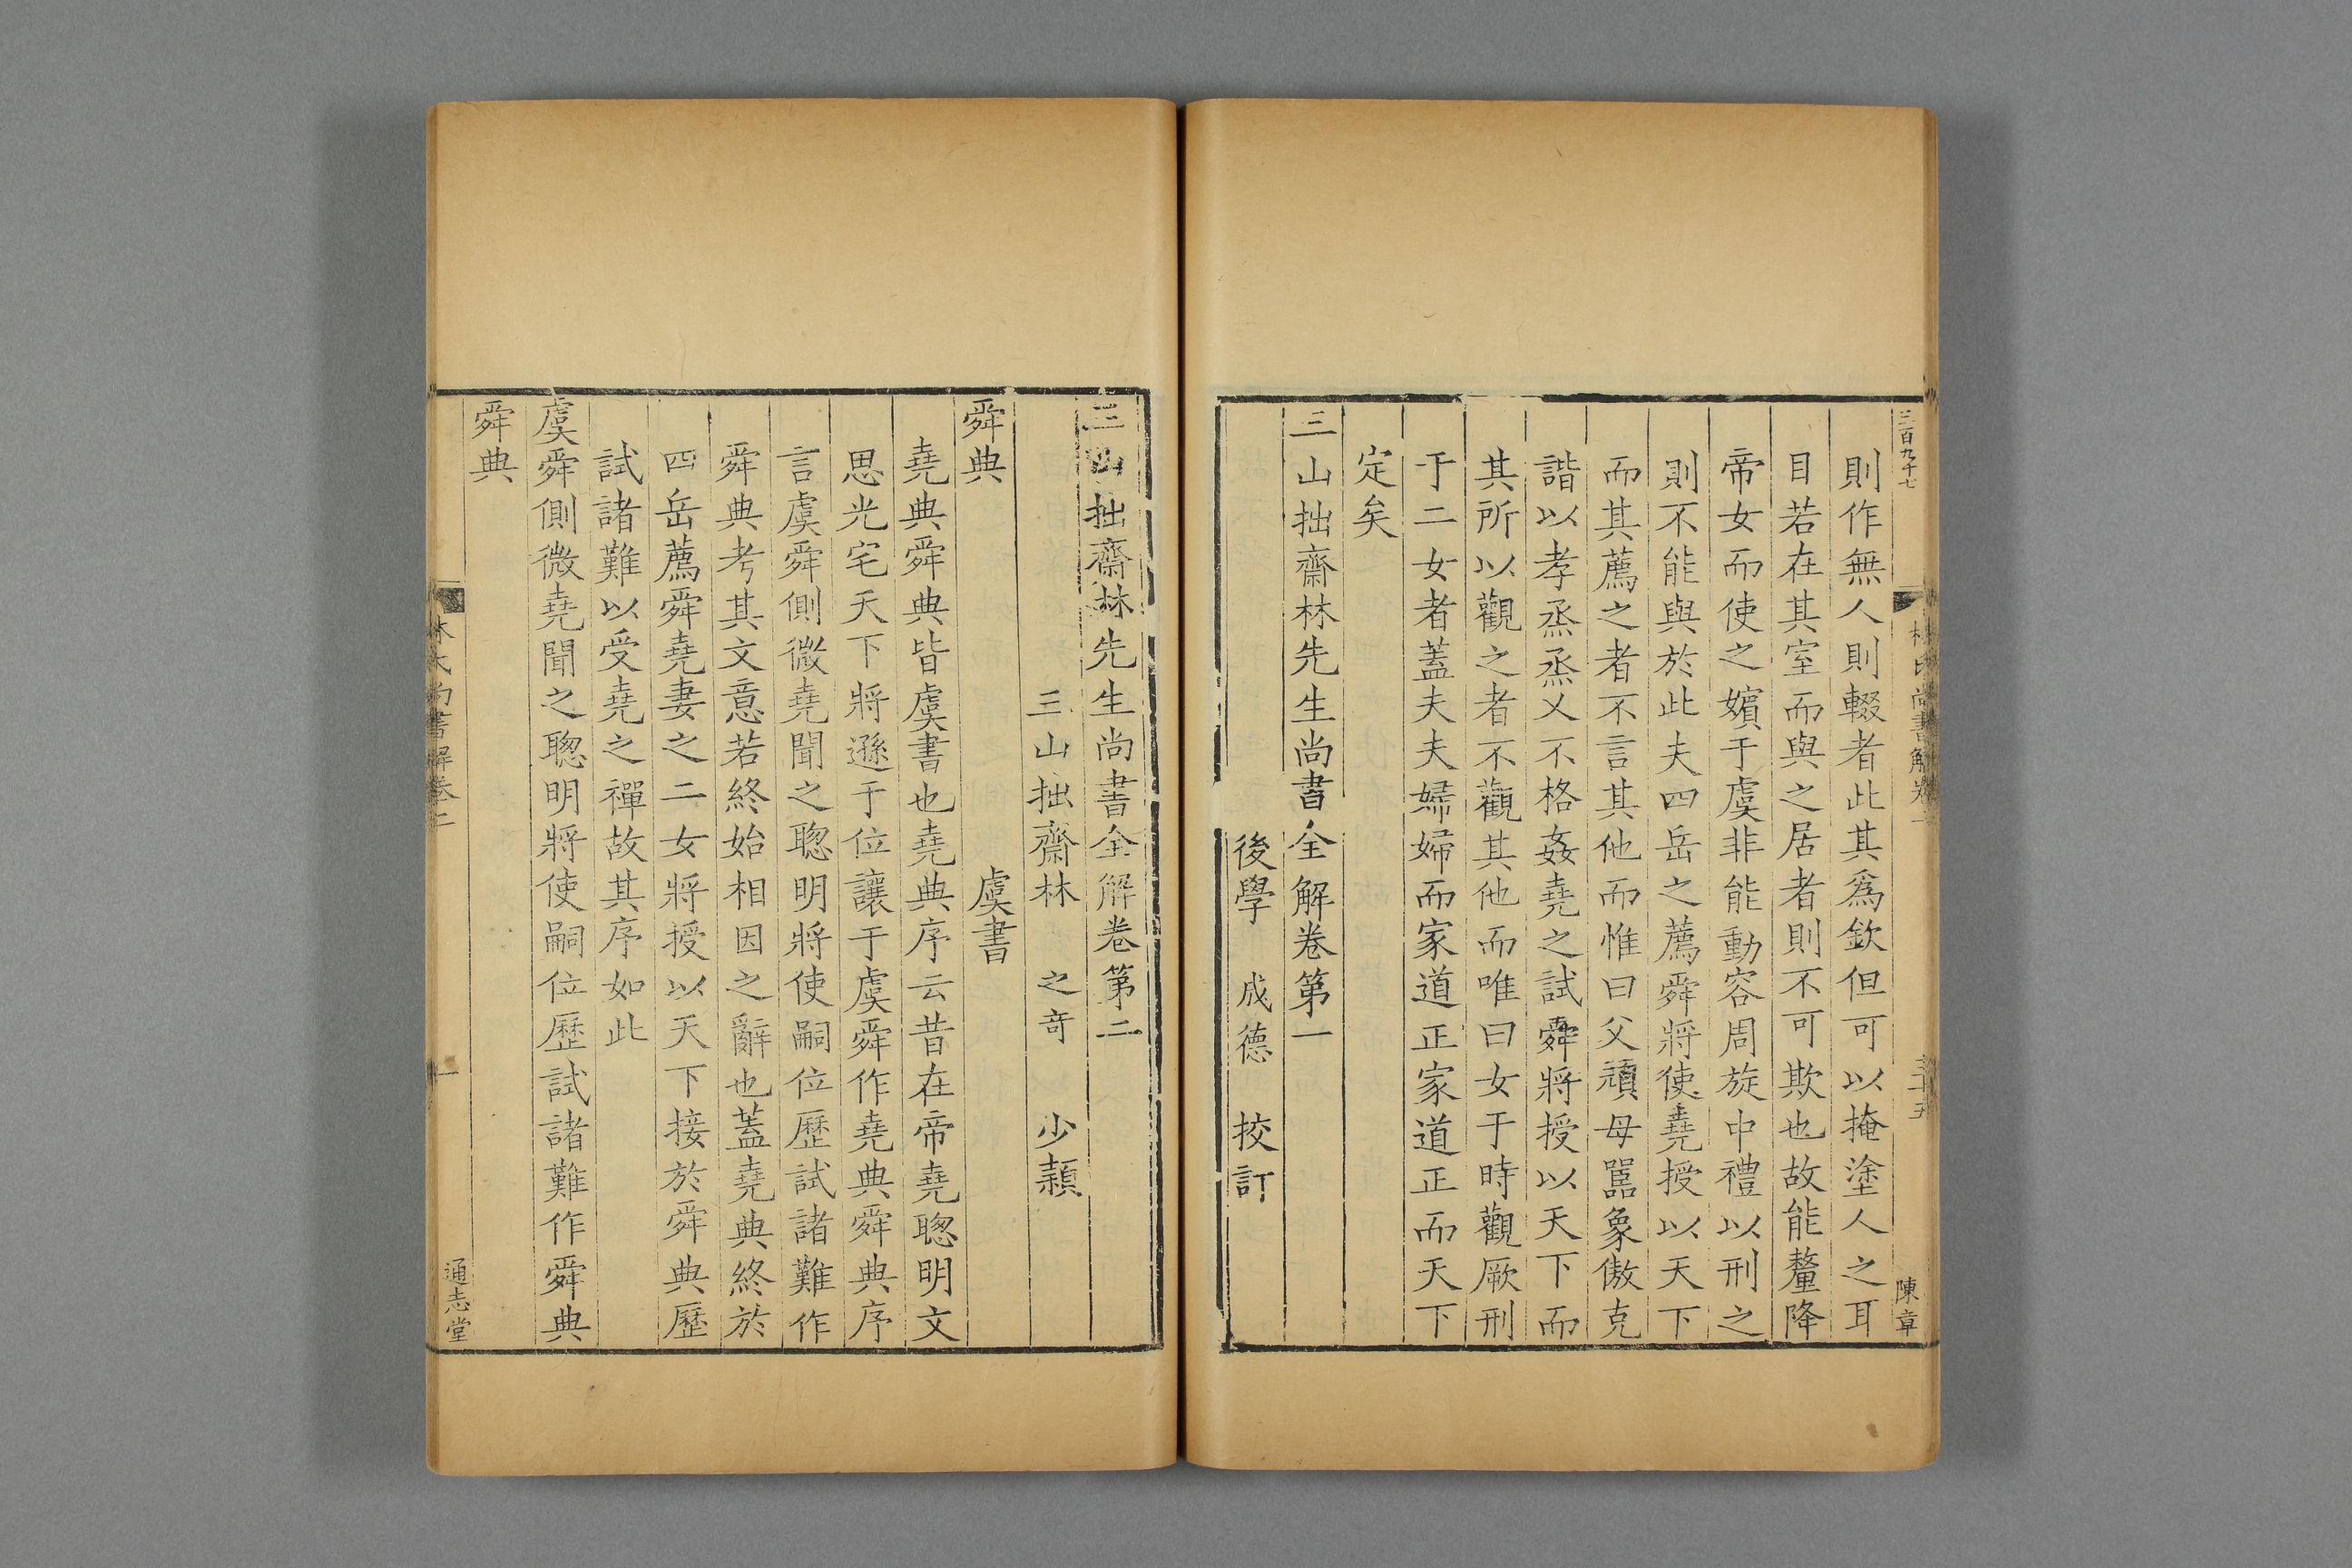 三百九十七
林氏尚書解卷一
三十五
陳章
則作無人則輟者此其爲欽但可以掩塗人之耳
目若在其室而與之居者則不可欺也故能釐降
帝女而使之嬪于虞非能動容周旋中禮以刑之
則不能與於此夫四岳之薦舜將使堯授以天下
而其薦之者不言其他而惟曰父頑母嚚象傲克
諧以孝烝烝乂不格姦堯之試舜將授以天下而
其所以觀之者不觀其他而唯曰女于時觀厥刑
于二女者蓋夫夫婦婦而家道正家道正而天下
定矣
三山拙齋林先生尚書全解卷第一
後學 成德 挍訂
三山拙齋林先生尚書全解卷第二
三山拙齋林 之奇 少穎
舜典 虞書
堯典舜典皆虞書也堯典序云昔在帝堯聦明文
思光宅天下將遜于位讓于虞舜作堯典舜典序
言虞舜側微堯聞之聦明將使嗣位歷試諸難作
舜典考其文意若終始相因之辭也蓋堯典終於
四岳薦舜堯妻之二女將授以天下接於舜典歷
試諸難以受堯之禪故其序如此
虞舜側微堯聞之聦明將使嗣位歷試諸難作舜典
舜典
林氏尚書解卷二
一
通志堂